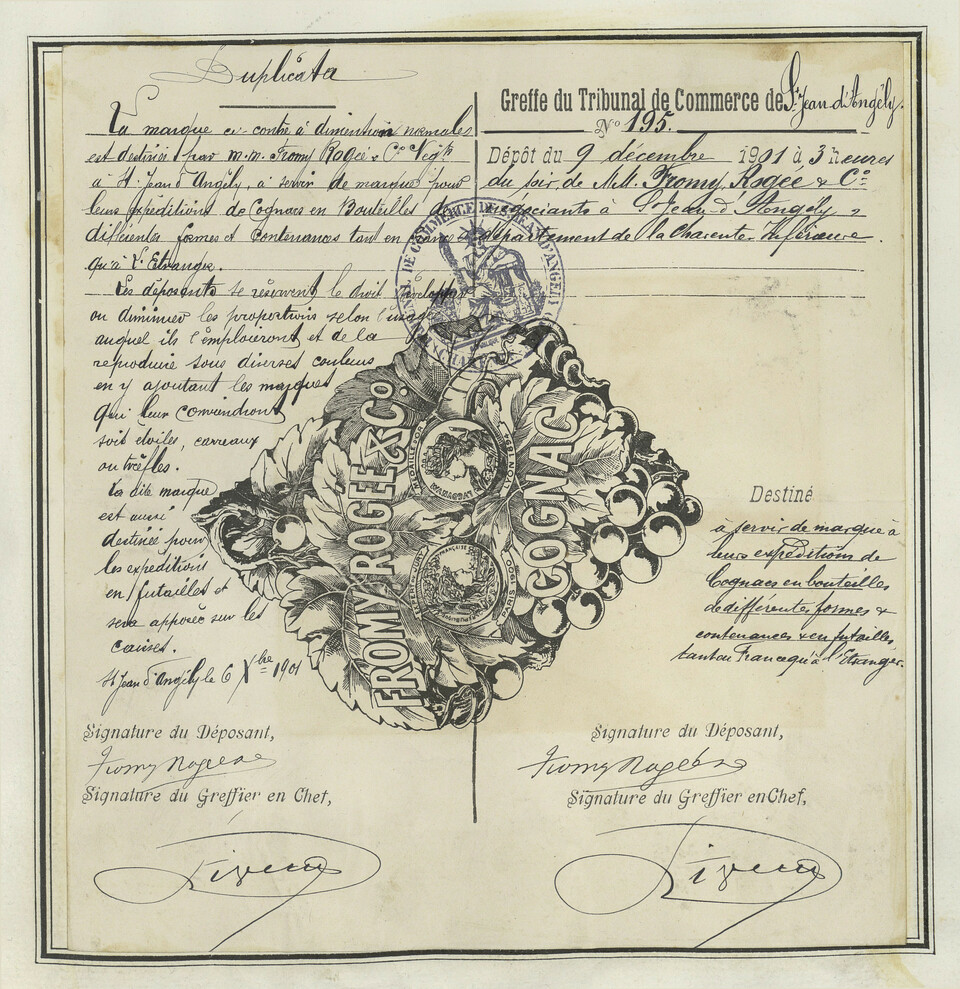 Duplicata
La marque ci-contre à dimention normales
est destinée par M.M. Fromy Rogée & Cº Négts
à St Jean d'Angély, à servir de marque pour
leurs expéditions de Cognacs en Bouteilles de
différentes formes et contenances tant en France
qu'à l'Etranger.
Les déposants se réservent le droit d'envelopper
ou diminuer les proportions selon l'usage
auquel ils l'emploieront et de la
reproduire sous diverses couleurs
en y ajoutant les marques
qui leur conviendront
soit étoiles, carreaux
ou trèfles.
La dite marque
est aussi
destinée pour
les expéditions
en futailles et
sera apposée sur les
caisses.
St Jean d'Angély le 6 Xbre 1901
Signature du Déposant,
Fromy Rogée & Cº
Signature du Greffier en Chef,
Greffe du Tribunal de Commerce de St Jean d'Angély.
Nº 195.
Dépôt du 9 décembre 1901 à 3 heures
du soir, de M.M. Fromy, Rogée & Cº
négociants à St Jean d'Angély
département de la Charente-Inférieure.
TRIBUNAL DE COMMERCE DE ST JEAN D'ANGELY
FROMY ROGÉE & Co.
COGNAC
MÉDAILLE D'OR
LYON 1894
MEMBRE DU JURY
PARIS 1900
Destiné
à servir de marque à
leurs expéditions de
Cognacs en bouteilles
de différentes formes &
contenances & en futailles,
tant en France qu'à l'Etranger.
Signature du Déposant,
Fromy Rogée & Cº
Signature du Greffier en Chef,